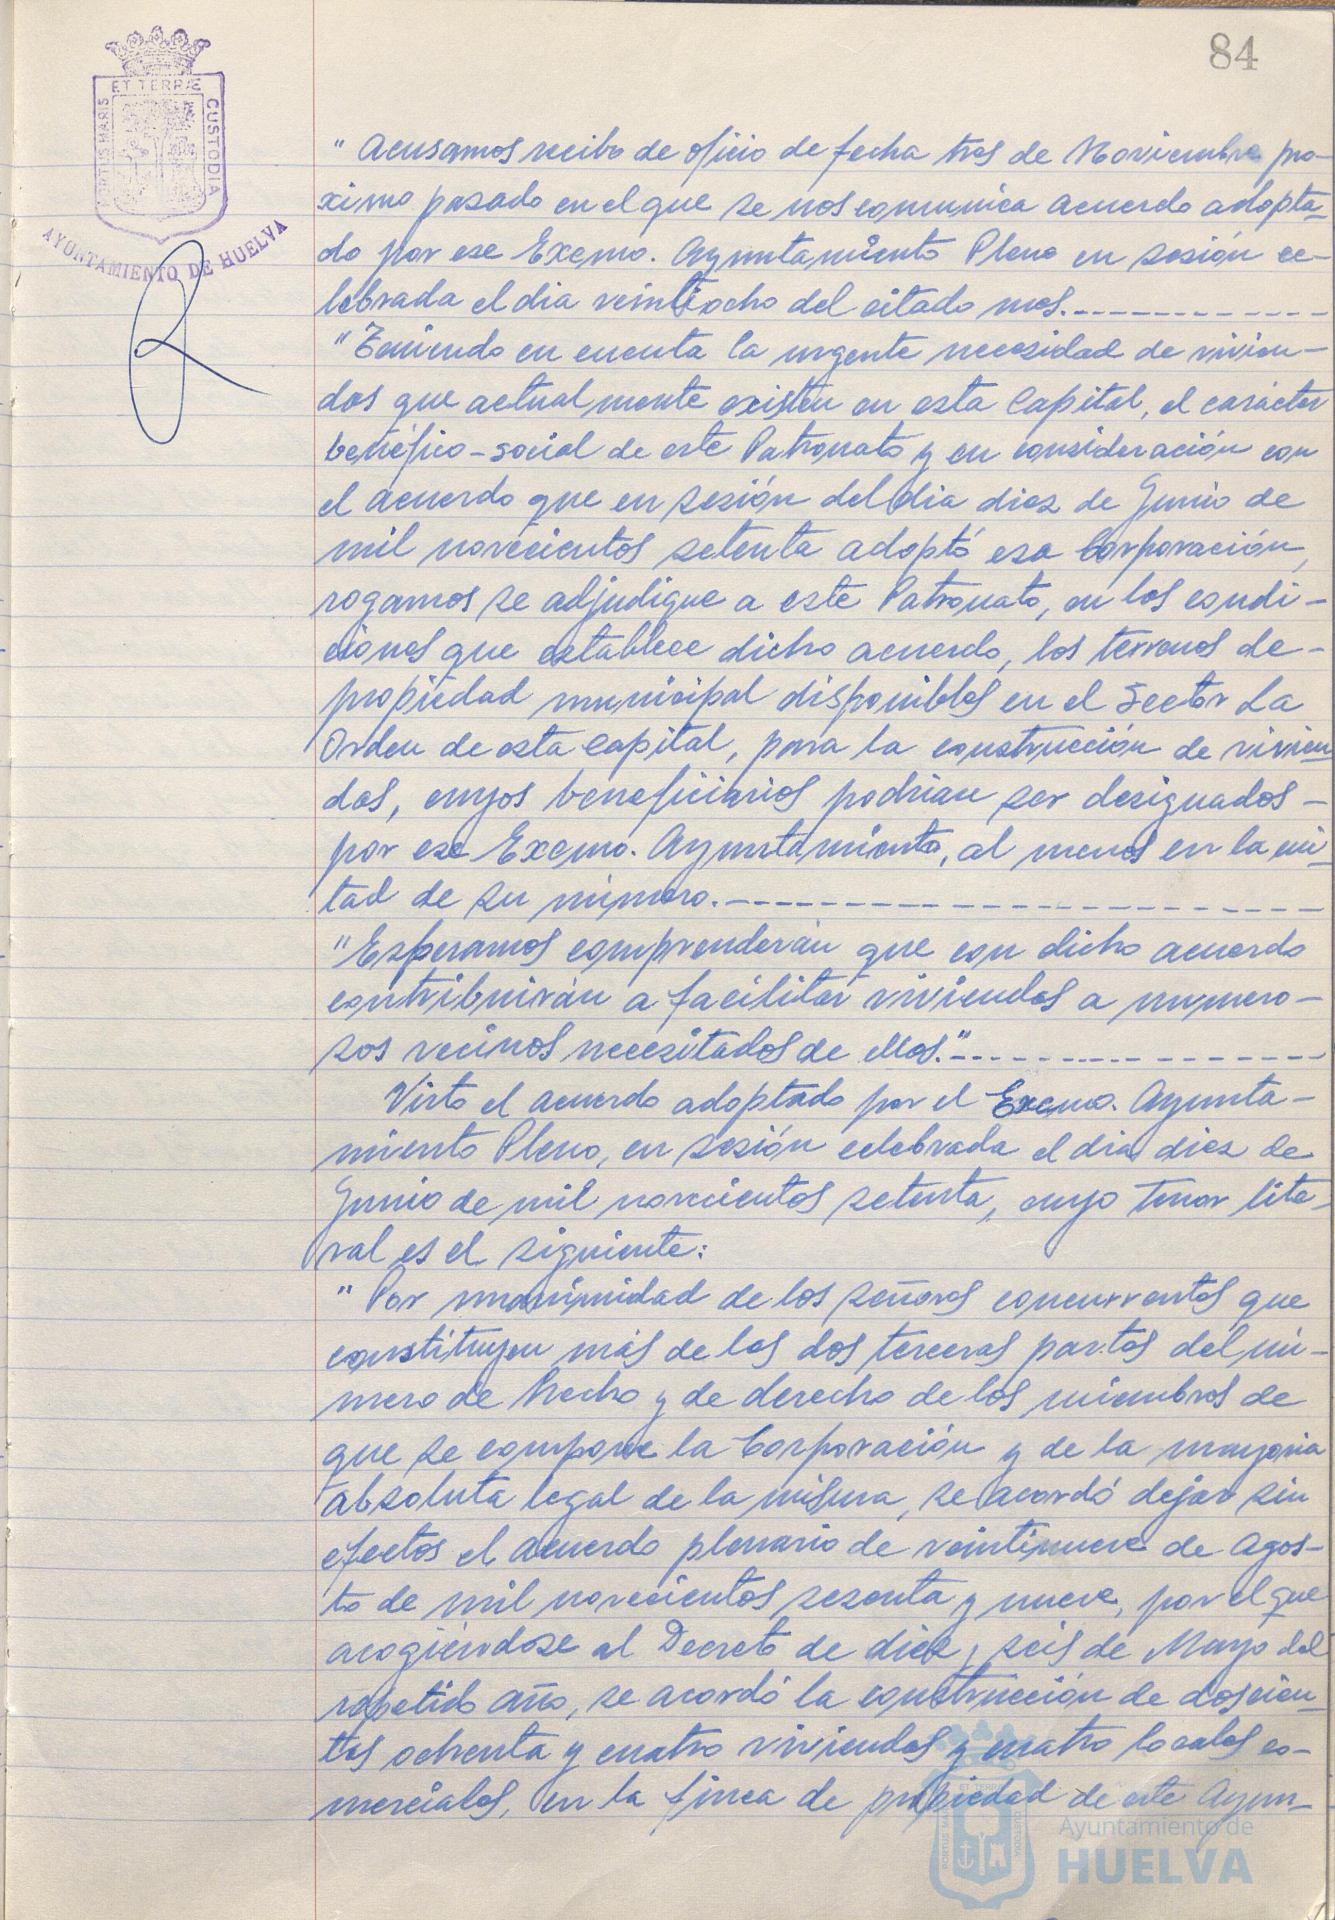 84
ET TERRÆ
PORTUS MARIS
CUSTODIA
AYUNTAMIENTO DE HUELVA
" Acusamos recibo de oficio de fecha tres de Noviembre pro-
ximo pasado en el que se nos comunica acuerdo adopta-
do por ese Excmo. Ayuntamiento Pleno en sesión ce-
lebrada el dia veintiocho del citado mes.------------
"Teniendo en cuenta la urgente necesidad de vivien-
das que actualmente existen en esta Capital, el carácter
benéfico-social de este Patronato y en consideración con
el acuerdo que en sesión del dia diez de Junio de
mil novecientos setenta adoptó esa Corporación,
rogamos se adjudique a este Patronato, en las condi-
ciones que establece dicho acuerdo, los terrenos de-
propiedad municipal disponibles en el Sector La
Orden de esta Capital, para la construcción de vivien
das, cuyos beneficiarios podrian ser designados-
por ese Excmo. Ayuntamiento, al menos en la mi-
tad de su número.------------------------
"Esperamos comprenderán que con dicho acuerdo
contribuirán a facilitar viviendas a numero-
sos vecinos necesitados de ellas."----------------
Visto el acuerdo adoptado por el Excmo. Ayunta-
miento Pleno, en sesión celebrada el dia diez de
Junio de mil novecientos setenta, cuyo tenor lite-
ral es el siguiente:
" Por unanimidad de los señores concurrentes que
constituyen más de las dos terceras partes del nú-
mero de hecho y de derecho de los miembros de
que se compone la Corporación y de la mayoria
absoluta legal de la misma, se acordó dejar sin
efectos el acuerdo plenario de veintinueve de Agos-
to de mil novecientos sesenta y nueve, por el que
acogiéndose al Decreto de diez y seis de Mayo del
repetido año, se acordó la construcción de doscien-
tas ochenta y cuatro viviendas y cuatro locales co-
merciales, en la finca de propiedad de este Ayun-
ET TERRÆ
PORTUS MARIS
CUSTODIA
Ayuntamiento de
HUELVA